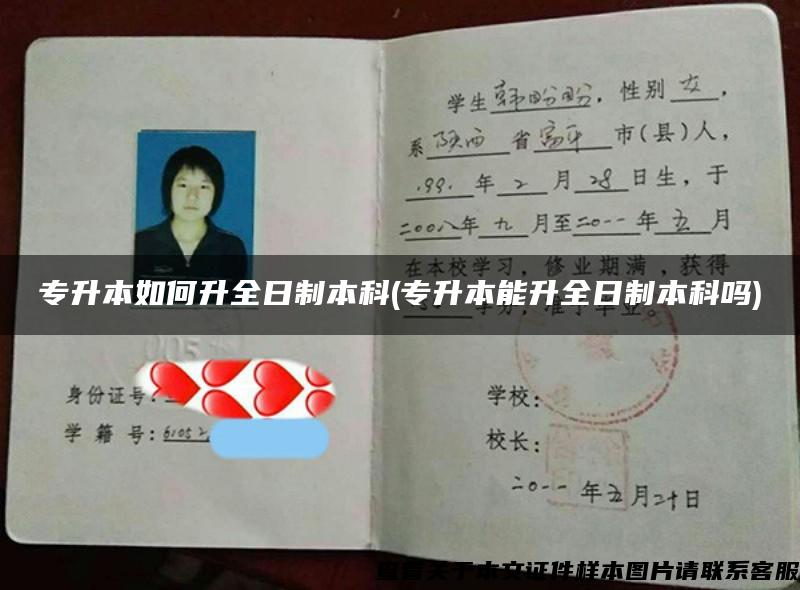 学生韩盼盼，性别女，
系陕西省富平市(县)人，
1991年2月28日生，于
二00八年九月至二0一一年五月
在本校学习，修业期满，获得
学分，准予毕业。
专升本如何升全日制本科(专升本能升全日制本科吗)
005
身份证号:
学籍号:61052
学校:
校长:
二0一一年五月二十日
查看关于本文证件样本图片请联系客服